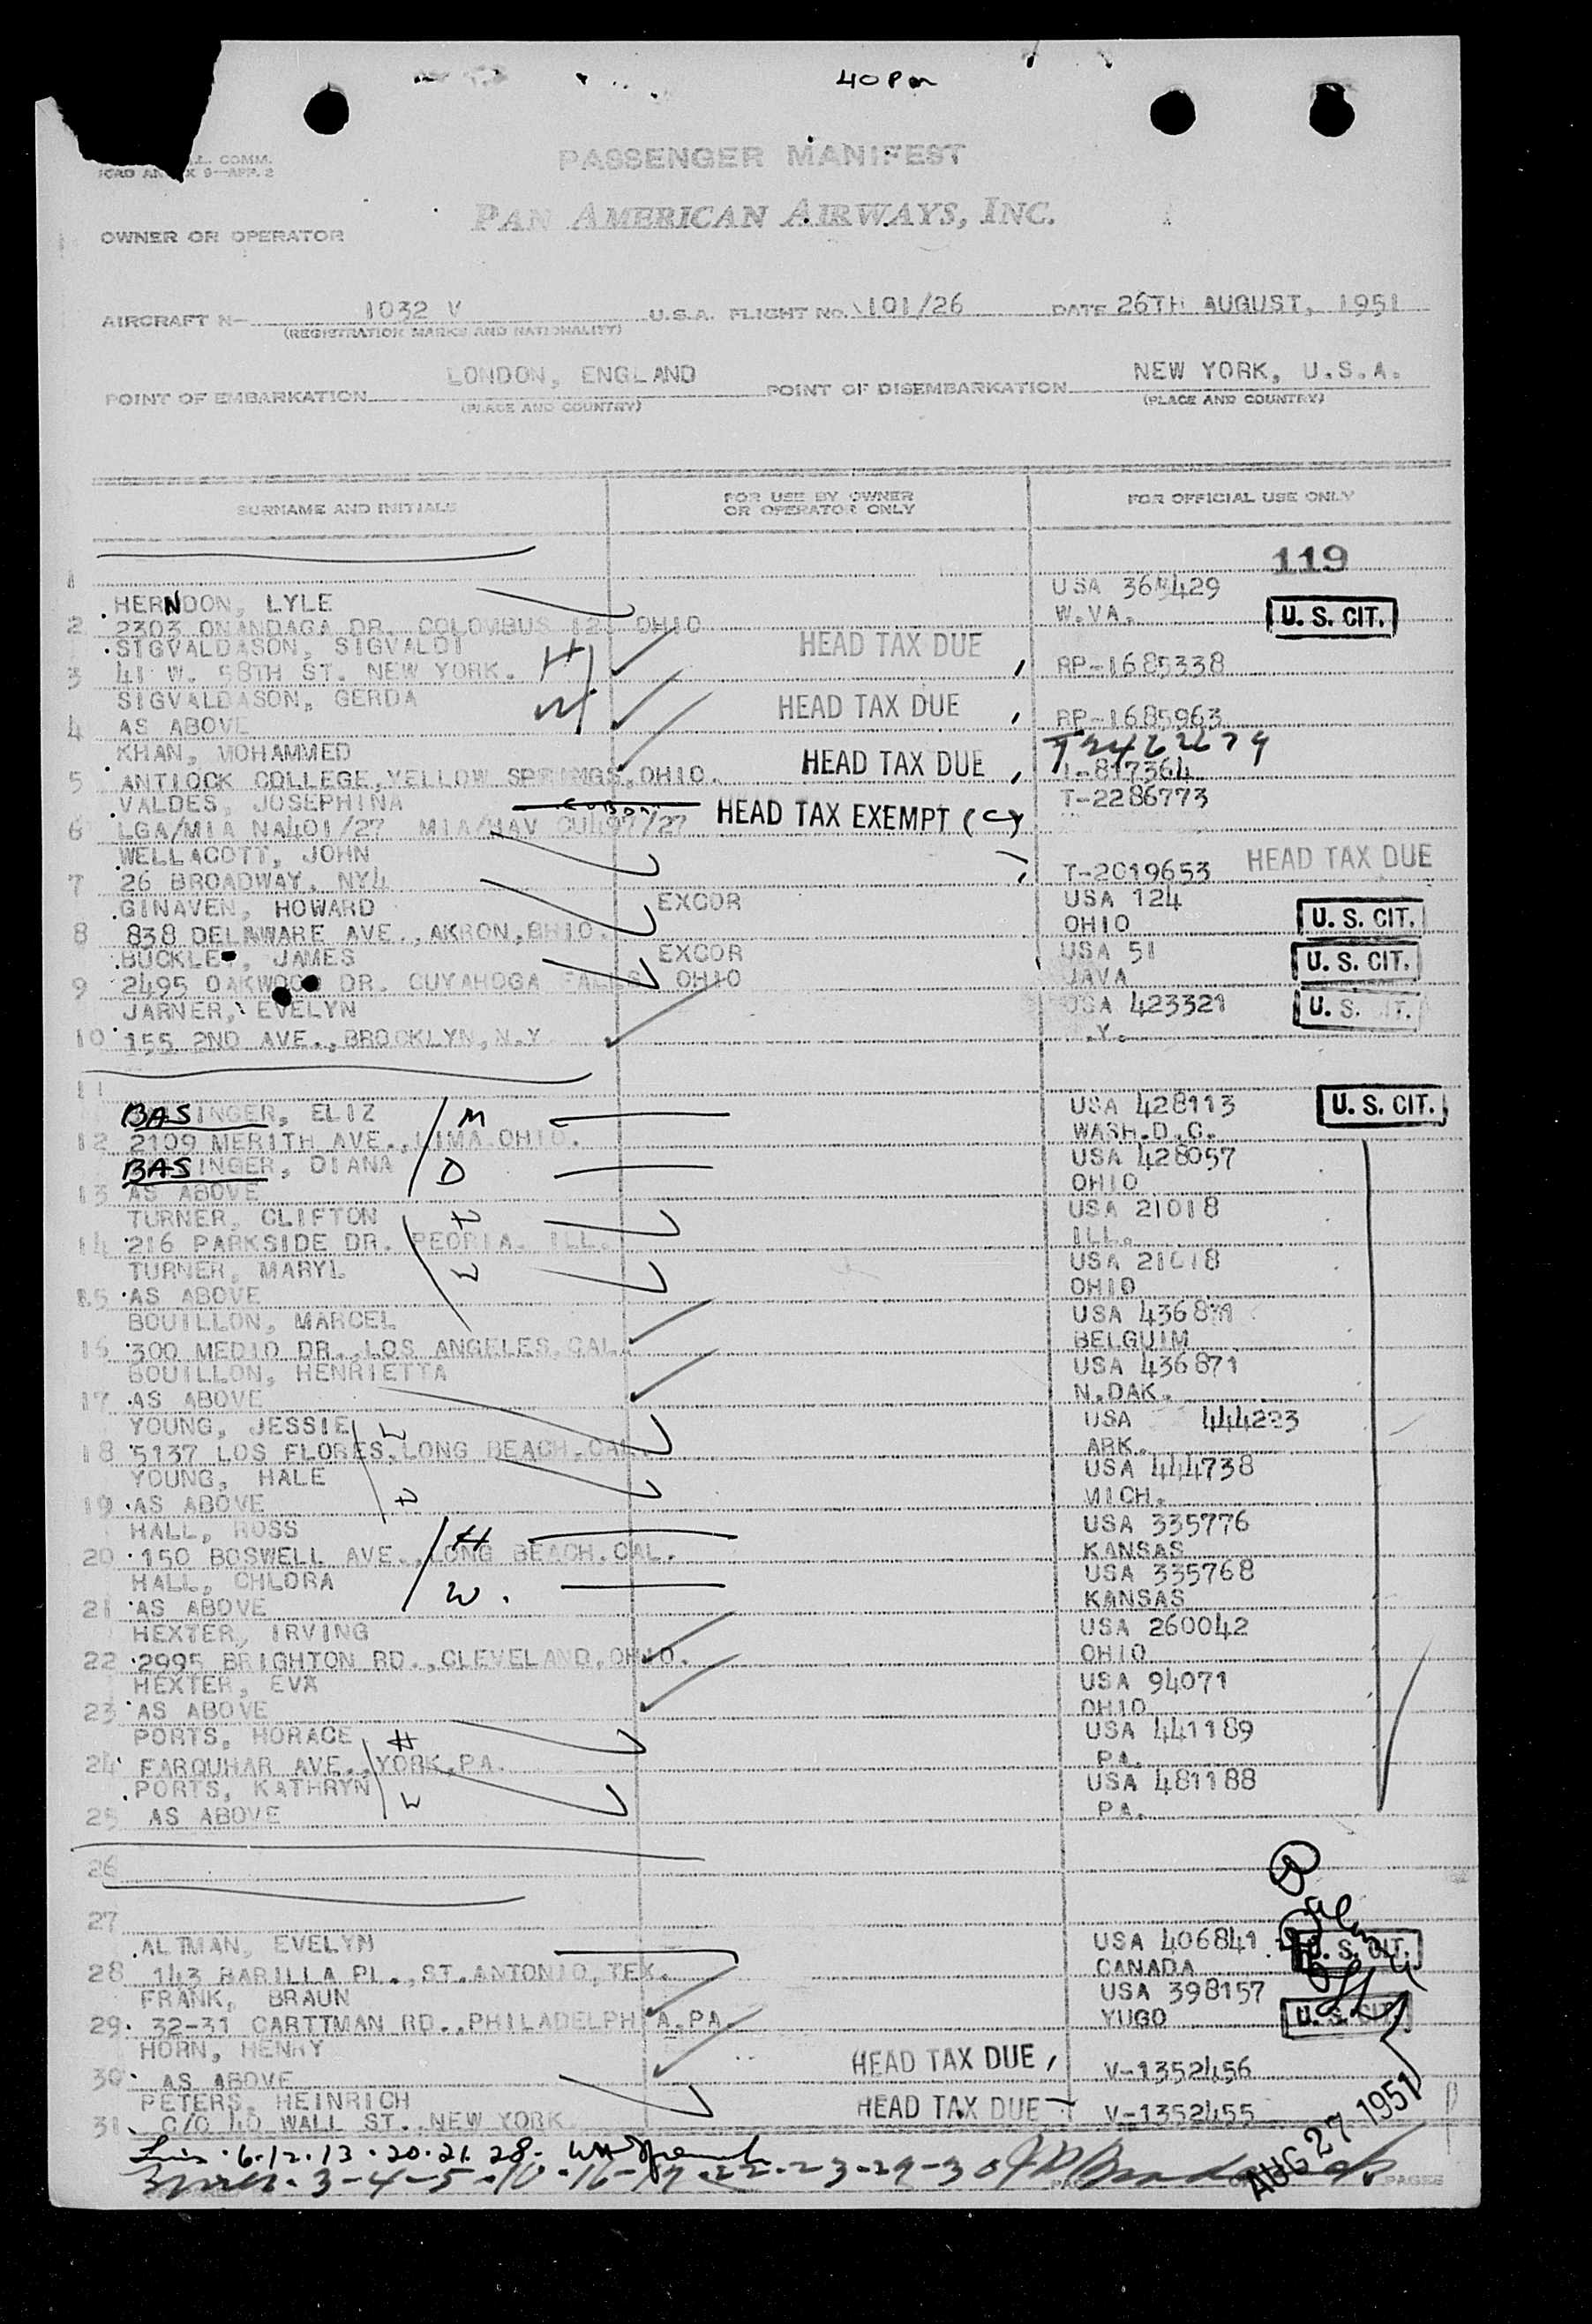 40 Pm
L. COMM.
ICAO ANNEX 9—APP. 2
PASSENGER MANIFEST
PAN AMERICAN AIRWAYS, INC.
OWNER OR OPERATOR
AIRCRAFT N- 1032 V U.S.A. FLIGHT No. 101/26 DATE 26TH AUGUST, 1951
(REGISTRATION MARKS AND NATIONALITY)
LONDON, ENGLAND NEW YORK, U.S.A.
POINT OF EMBARKATION POINT OF DISEMBARKATION
(PLACE AND COUNTRY) (PLACE AND COUNTRY)
SURNAME AND INITIALS FOR USE BY OWNER OR OPERATOR ONLY FOR OFFICIAL USE ONLY
119
1
HERNDON, LYLE USA 429
2 2303 ONANDAGA DR. COLOMBUS 12 OHIO W.VA. U. S. CIT.
SIGVALDASON, SIGVALDI H HEAD TAX DUE
3 41 W. 58TH ST. NEW YORK. RP-1685338
SIGVALDASON, GERDA W HEAD TAX DUE
4 AS ABOVE RP-1685963
KHAN, MOHAMMED HEAD TAX DUE
5 ANTIOCK COLLEGE, YELLOW SPRINGS, OHIO. T-817364
VALDES, JOSEPHINA HEAD TAX EXEMPT (C) T-2286773
6 LGA/MIA NA401/27 MIA/HAV CU497/27
WELLACOTT, JOHN HEAD TAX DUE
7 26 BROADWAY, NY4 T-2019653
GINAVEN, HOWARD EXCOR USA 124
8 838 DELAWARE AVE., AKRON, OHIO. OHIO U. S. CIT.
BUCKLEY, JAMES EXCOR USA 51
9 2495 OAKWOOD DR. CUYAHOGA FALLS OHIO JAVA U. S. CIT.
JARNER, EVELYN USA 423321 U. S. CIT.
10 155 2ND AVE., BROOKLYN, N.Y .Y.
11
BASINGER, ELIZ M USA 428113 U. S. CIT.
12 2109 MERITH AVE., LIMA OHIO. WASH.D.C.
BASINGER, DIANA D USA 428057
13 AS ABOVE OHIO
TURNER, CLIFTON H USA 21018
14 216 PARKSIDE DR. PEORIA. ILL. ILL.
TURNER, MARYL W USA 21018
15 AS ABOVE OHIO
BOUILLON, MARCEL USA 436871
16 300 MEDIO DR., LOS ANGELES, CAL. BELGUIM
BOUILLON, HENRIETTA USA 436871
17 AS ABOVE N.DAK.
YOUNG, JESSIE W USA 444223
18 5137 LOS FLORES, LONG BEACH, CAL. ARK.
YOUNG, HALE H USA 444738
19 AS ABOVE MICH.
HALL, ROSS H USA 335776
20 150 BOSWELL AVE., LONG BEACH, CAL. KANSAS
HALL, CHLORA W. USA 335768
21 AS ABOVE KANSAS
HEXTER, IRVING USA 260042
22 2995 BRIGHTON RD., CLEVELAND, OHIO. OHIO
HEXTER, EVA USA 94071
23 AS ABOVE OHIO
PORTS, HORACE H USA 441189
24 FARQUHAR AVE., YORK, PA. PA.
PORTS, KATHRYN W USA 481188
25 AS ABOVE PA.
26
27
ALTMAN, EVELYN USA 406841 U. S. CIT.
28 143 BARILLA PL., ST. ANTONIO, TEX. CANADA
FRANK, BRAUN USA 398157
29 32-31 CARTTMAN RD., PHILADELPHIA, PA. YUGO U. S. CIT.
HORN, HENRY HEAD TAX DUE
30 AS ABOVE V-1352456
PETERS, HEINRICH HEAD TAX DUE
31 C/O 40 WALL ST. NEW YORK V-1352455
6.12.13.20.21.28
3-4-5-10-16-17-22-23-29-30
AUG 27 1951
PAGES